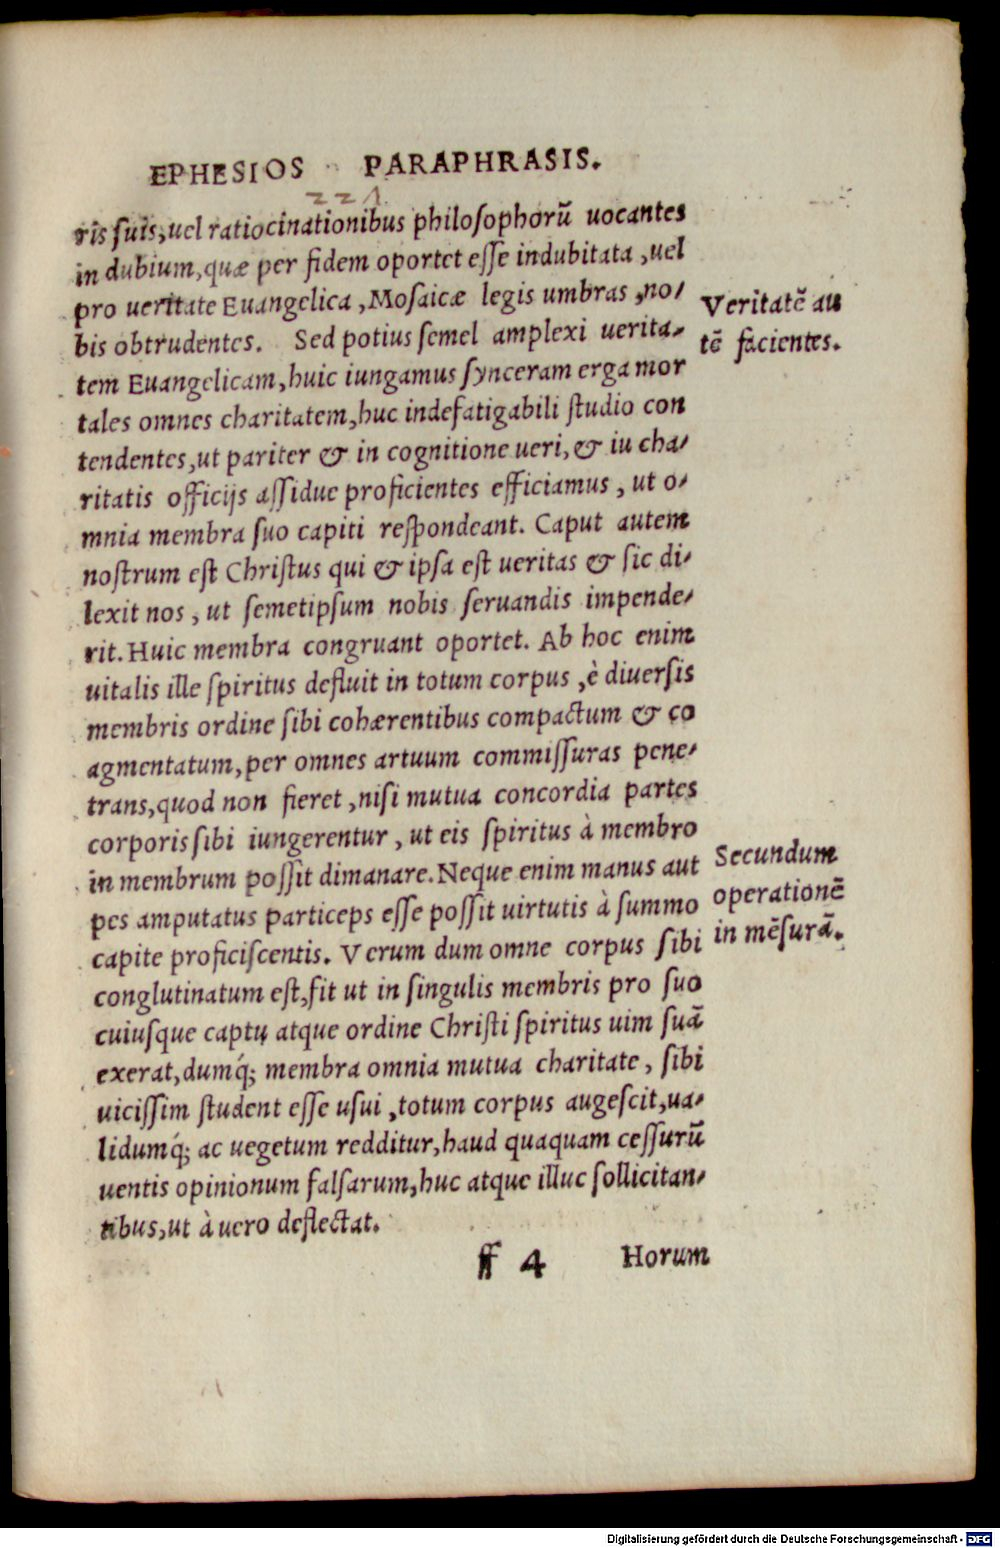 EPHESIOS PARAPHRASIS.
221
ris suis, uel ratiocinationibus philosophorū uocantes
in dubium, quæ per fidem oportet esse indubitata, uel
pro ueritate Euangelica, Mosaicæ legis umbras, no-
bis obtrudentes. Sed potius semel amplexi uerita-
tem Euangelicam, huic iungamus synceram erga mor
tales omnes charitatem, huc indefatigabili studio con
tendentes, ut pariter & in cognitione ueri, & iu cha-
ritatis officijs assidue proficientes efficiamus, ut o-
mnia membra suo capiti respondeant. Caput autem
nostrum est Christus qui & ipsa est ueritas & sic di-
lexit nos, ut semetipsum nobis seruandis impende-
rit. Huic membra congruant oportet. Ab hoc enim
uitalis ille spiritus defluit in totum corpus, è diuersis
membris ordine sibi cohærentibus compactum & co
agmentatum, per omnes artuum commissuras pene-
trans, quod non fieret, nisi mutua concordia partes
corporis sibi iungerentur, ut eis spiritus à membro
in membrum possit dimanare. Neque enim manus aut
pes amputatus particeps esse possit uirtutis à summo
capite proficiscentis. Verum dum omne corpus sibi
conglutinatum est, fit ut in singulis membris pro suo
cuiusque captu atque ordine Christi spiritus uim suā
exerat, dumq́; membra omnia mutua charitate, sibi
uicissim student esse usui, totum corpus augescit, ua-
lidumq́; ac uegetum redditur, haud quaquam cessurū
uentis opinionum falsarum, huc atque illuc sollicitan-
tibus, ut à uero deflectat.
ff 4 Horum
Veritatē au
tē facientes.
Secundum
operationē
in mēsurā.
Digitalisierung gefördert durch die Deutsche Forschungsgemeinschaft - DFG